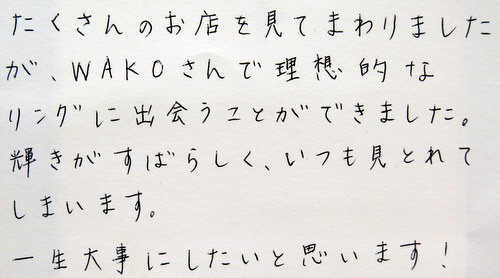 たくさんのお店を見てまわりました
が、WAKOさんで理想的な
リングに出会うことができました。
輝きがすばらしく、いつも見とれて
しまいます。
一生大事にしたいと思います！